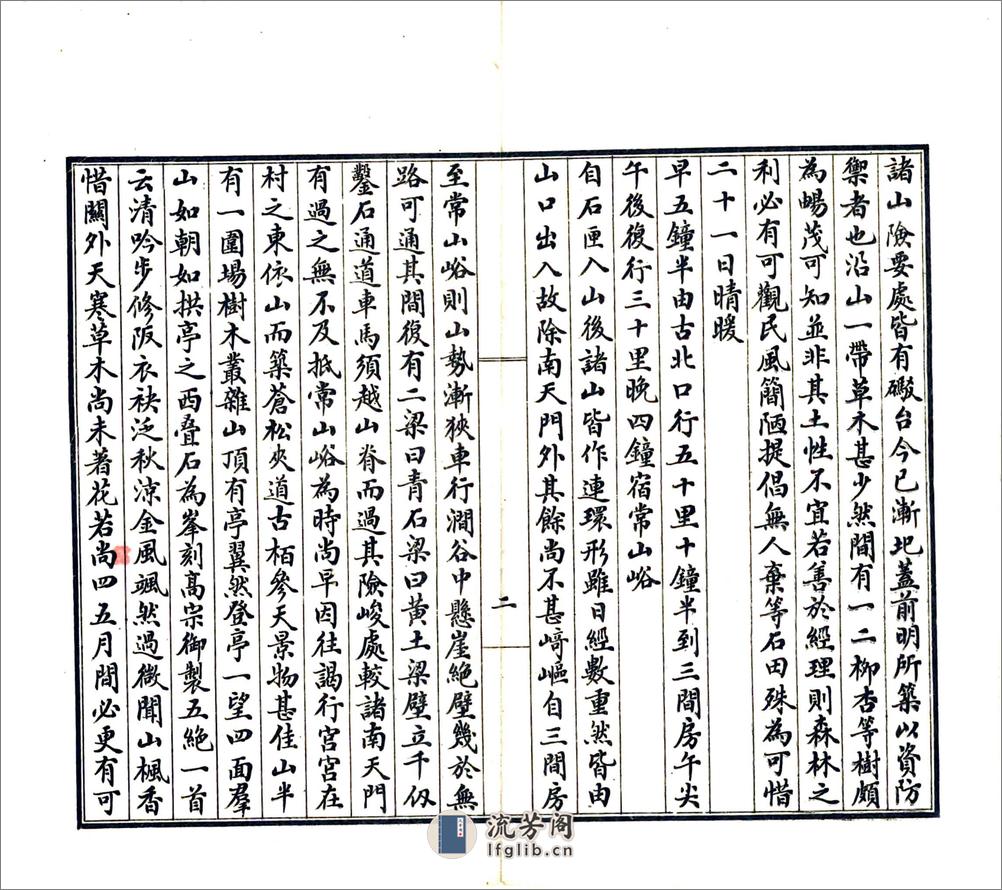 諸山險要處皆有礮台今已漸圮蓋前明所築以資防
禦者也沿山一帶草木甚少然間有一二柳杏等樹頗
為暢茂可知並非其土性不宜若善於經理則森林之
利必有可觀民風簡陋提倡無人棄等石田殊為可惜
二十一日晴暖
早五鐘半由古北口行五十里十鐘半到三間房午尖
午後復行三十里晚四鐘宿常山峪
自石匣入山後諸山皆作連環形雖日經數重然皆由
山口出入故除南天門外其餘尚不甚崎嶇自三間房
二
至常山峪則山勢漸狹車行澗谷中懸崖絕壁幾於無
路可通其間復有二梁曰青石梁曰黃土梁壁立千仞
鑿石通道車馬須越山脊而過其險峻處較諸南天門
有過之無不及抵常山峪為時尚早因往謁行宮宮在
村之東依山而築蒼松夾道古栢參天景物甚佳山半
有一圍場樹木叢雜山頂有亭翼然登亭一望四面羣
山如朝如拱亭之西疊石為峯刻高宗御製五絕一首
云清吟步修阪衣袂泛秋涼金風颯然過微聞山楓香
惜關外天寒草木尚未著花若尚四五月間必更有可
流芳阁
lfglib.cn